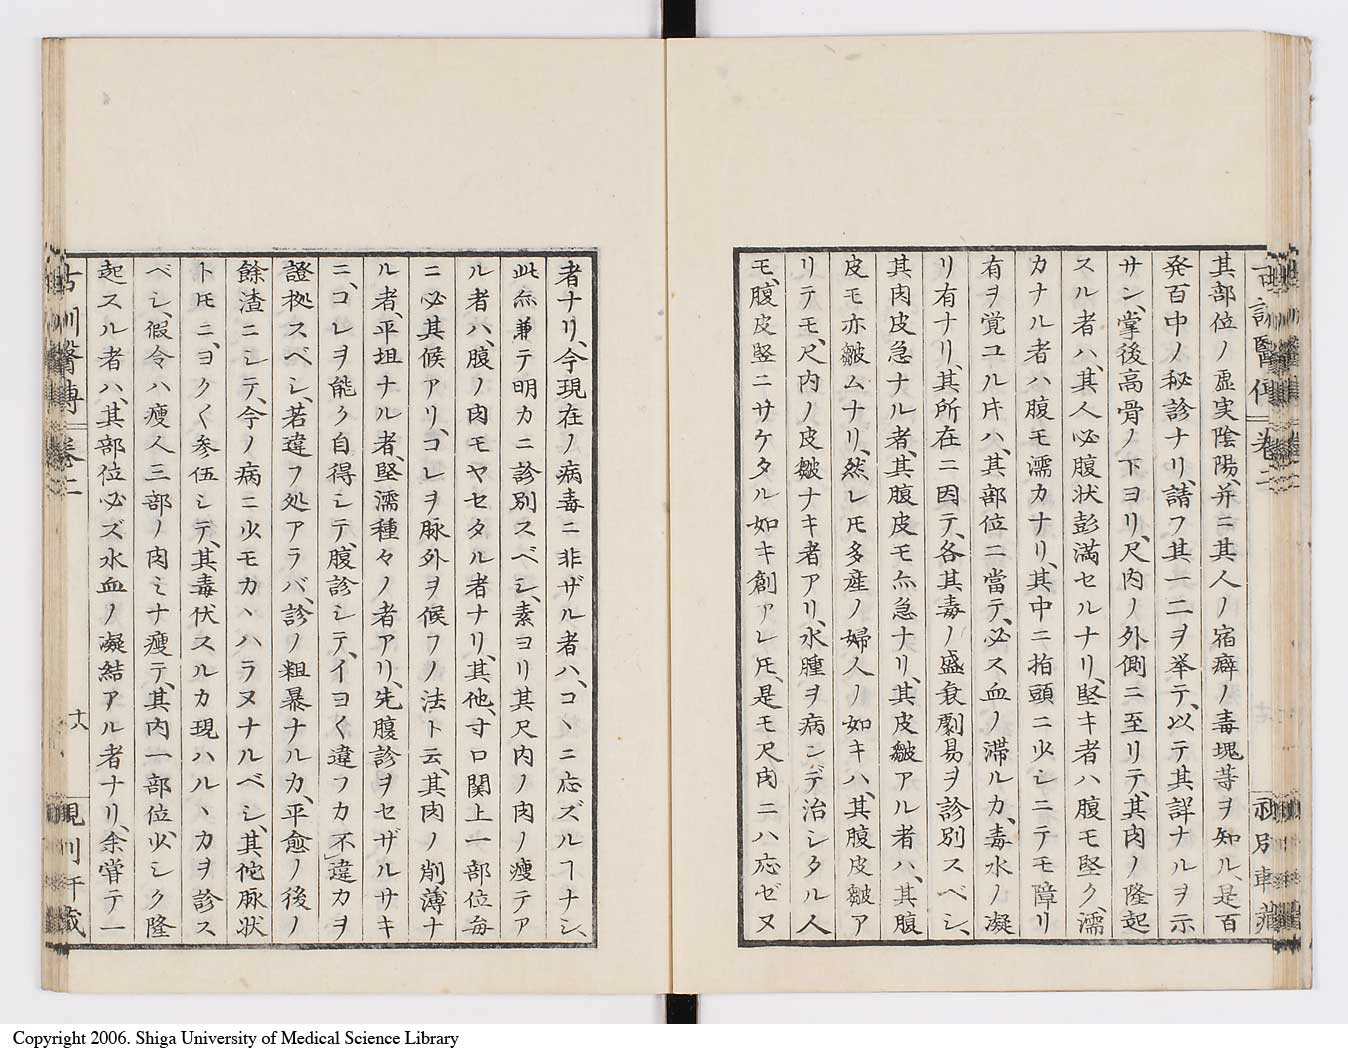 其部位ノ虚実陰陽、并ニ其人ノ宿癖ノ毒塊等ヲ知ル、是百
発百中ノ秘診ナリ、請フ其一二ヲ挙テ、以テ其詳ナルヲ示
サン、掌後高骨ノ下ヨリ、尺内ノ外側ニ至リテ、其肉ノ隆起
スル者ハ、其人必腹状彭満セルナリ、堅キ者ハ腹モ堅ク、濡
カナル者ハ腹モ濡カナリ、其中ニ指頭ニ少シニテモ障リ
有ヲ覚ユル片ハ、其部位ニ當テ、必ス血ノ滞ルカ、毒水ノ凝
リ有ナリ、其所在ニ因テ、各其毒ノ盛衰劇易ヲ診別スベシ、
其肉皮急ナル者、其腹皮モ亦急ナリ、其皮皺アル者ハ、其腹
皮モ亦皺ムナリ、然レ𪜈多産ノ婦人ノ如キハ、其腹皮皺ア
リテモ、尺内ノ皮皺ナキ者アリ、水腫ヲ病ンデ治シタル人
モ、腹皮竪ニサケタル如キ創アレ𪜈、是モ尺肉ニハ応ゼヌ
者ナリ、今現在ノ病毒ニ非ザル者ハ、コヽニ応ズルヿナシ、
此亦兼テ明カニ診別スベシ、素ヨリ其尺内ノ肉ノ痩テア
ル者ハ、腹ノ肉モヤセタル者ナリ、其他、寸口関上一部位毎
ニ必其候アリ、コレヲ脉外ヲ候フノ法ト云、其肉ノ削薄ナ
ル者、平坦ナル者、堅濡種々ノ者アリ、先腹診ヲセザルサキ
ニ、コレヲ能ク自得シテ、腹診シテ、イヨく違フカ不違カヲ
證拠スベシ、若違フ処アラバ、診ノ粗暴ナルカ、平愈ノ後ノ
餘渣ニシテ、今ノ病ニ少モカヽハラヌナルベシ、其佗脈状
ト𪜈ニ、ヨクく参伍シテ、其毒伏スルカ現ハルヽカヲ診ス
ベシ、假令ハ痩人三部ノ肉ミナ痩テ、其内一部位少シク隆
起スル者ハ、其部位必ズ水血ノ凝結アル者ナリ、余嘗テ一
古訓醫傳 巻二
Copyright 2006. Shiga University of Medical Science Library